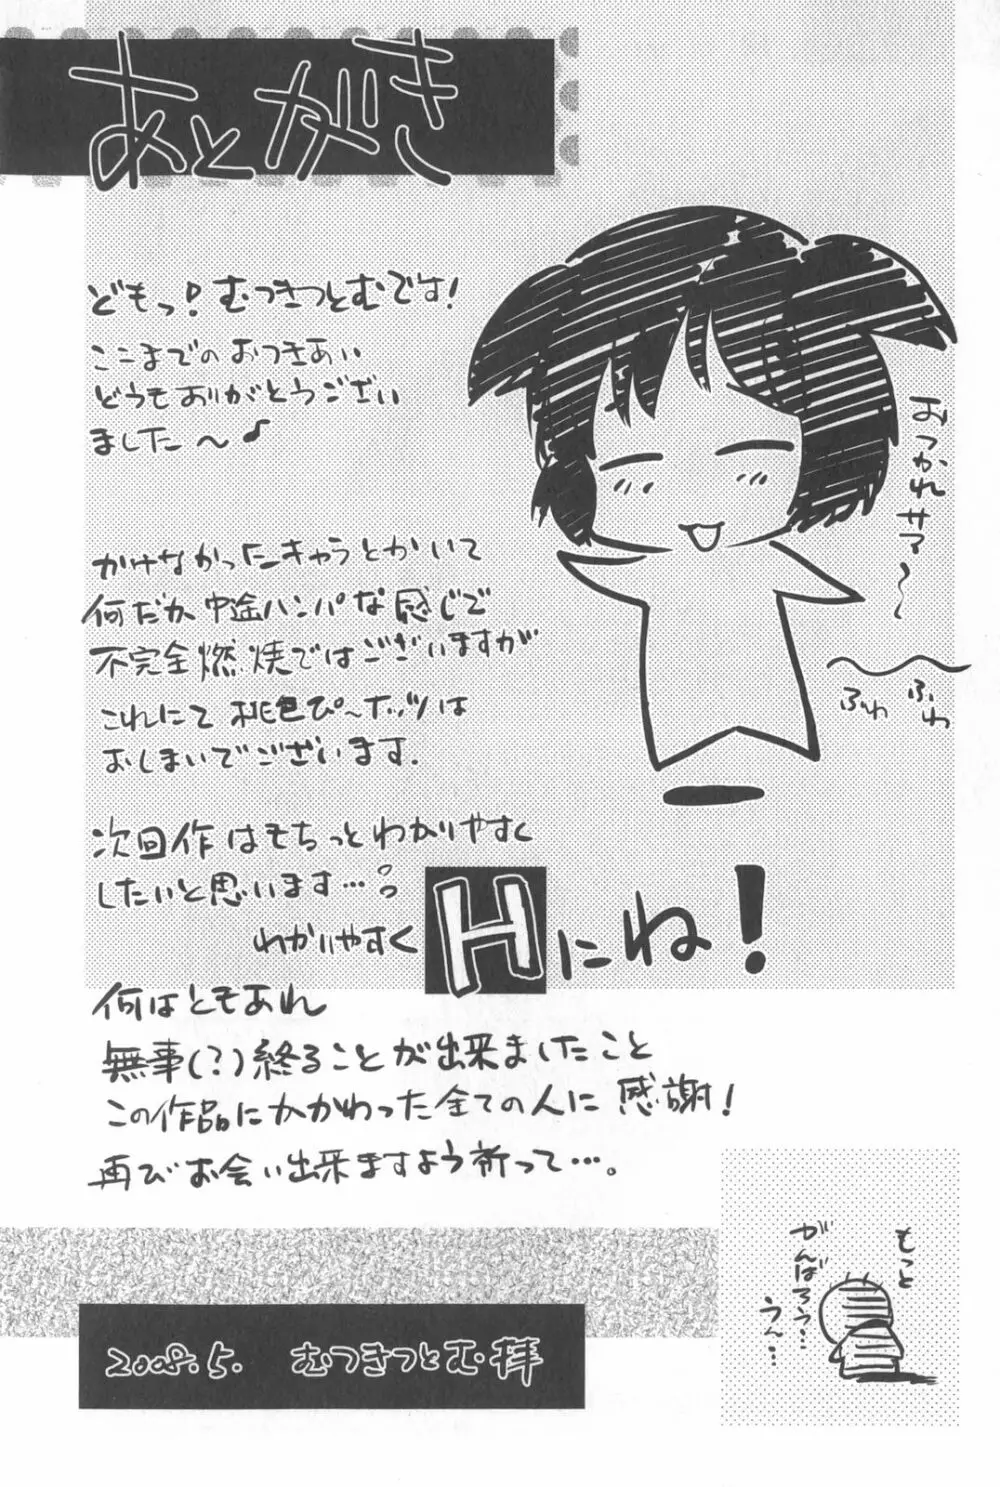 あとがき
どもっ!むつきつとむです!
ここまでのおつきあい
どうもありがとうござい
ました〜♪
おつかれサマ〜〜
ふわ
ふわ
かけなかったキャラとかいて
何だか中途ハンパな感じで
不完全燃焼ではございますが
これにて桃色ぴーホッツは
おしまいでございます.
次回作はもちっとわかりやすく
したいと思います…。
わかりやすくHにね!
何はともあれ
無事(?)終ることが出来ましたこと
この作品にかかわった全ての人に感謝!
再びお会い出来ますよう祈って…。
もっと
がんばろう…
うん…
2008.5. むつきつとむ拝